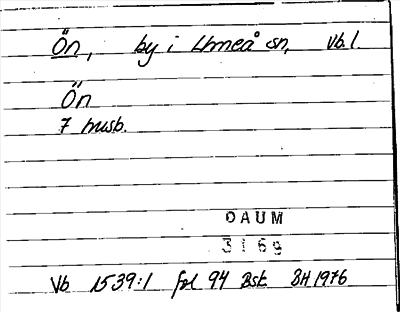 Ön, by i Umeå sn, Vb.l.
Ön
7 husb.
DAUM
3169
Vb 1539:1 fol 94 Bst BH 1976